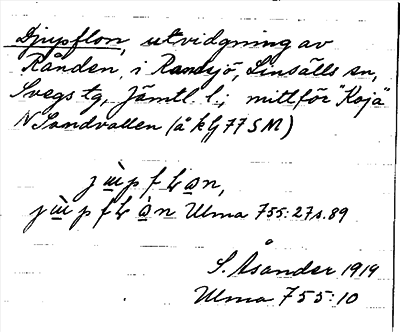 Djupflon, utvidgning av
Rånden, i Randsjö, Linsälls sn,
Svegs tg, Jämtl. l.; mittför "Koja"
N Sandvallen (å kbl 77 SM)
j ɯ̀ p f ł o n,
j ɯ̀ p f ł ò n Ulma 755:27 s. 89
S. Åsander 1919
Ulma 755:10